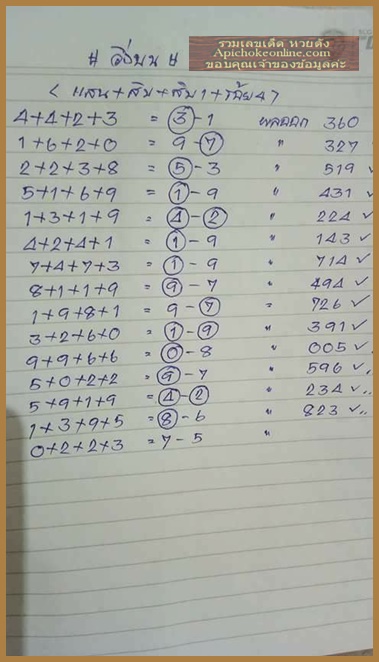 รวมเลขเด็ด หวยดัง
Apichokeonline.com
ขอบคุณเจ้าของข้อมูลค่ะ
# วิ่งบน #
< แสน + สิบ + สิบ 1 + ร้อย 4 >
4+4+2+3 = 3-1 ผลออก 360
1+6+2+0 = 9-7 " 327
2+2+3+8 = 5-3 " 519 ✓
5+1+6+9 = 1-9 " 431 ✓
1+3+1+9 = 4-2 " 224 ✓
4+2+4+1 = 1-9 " 143 ✓
7+4+7+3 = 1-9 " 714 ✓
8+1+1+9 = 9-7 " 494 ✓
1+9+8+1 = 9-7 " 726 ✓
3+2+6+0 = 1-9 " 391 ✓
9+9+6+6 = 0-8 " 005 ✓
5+0+2+2 = 9-7 " 596 ✓
5+9+1+9 = 4-2 " 234 ✓
1+3+9+5 = 8-6 " 823 ✓
0+2+2+3 = 7-5 "